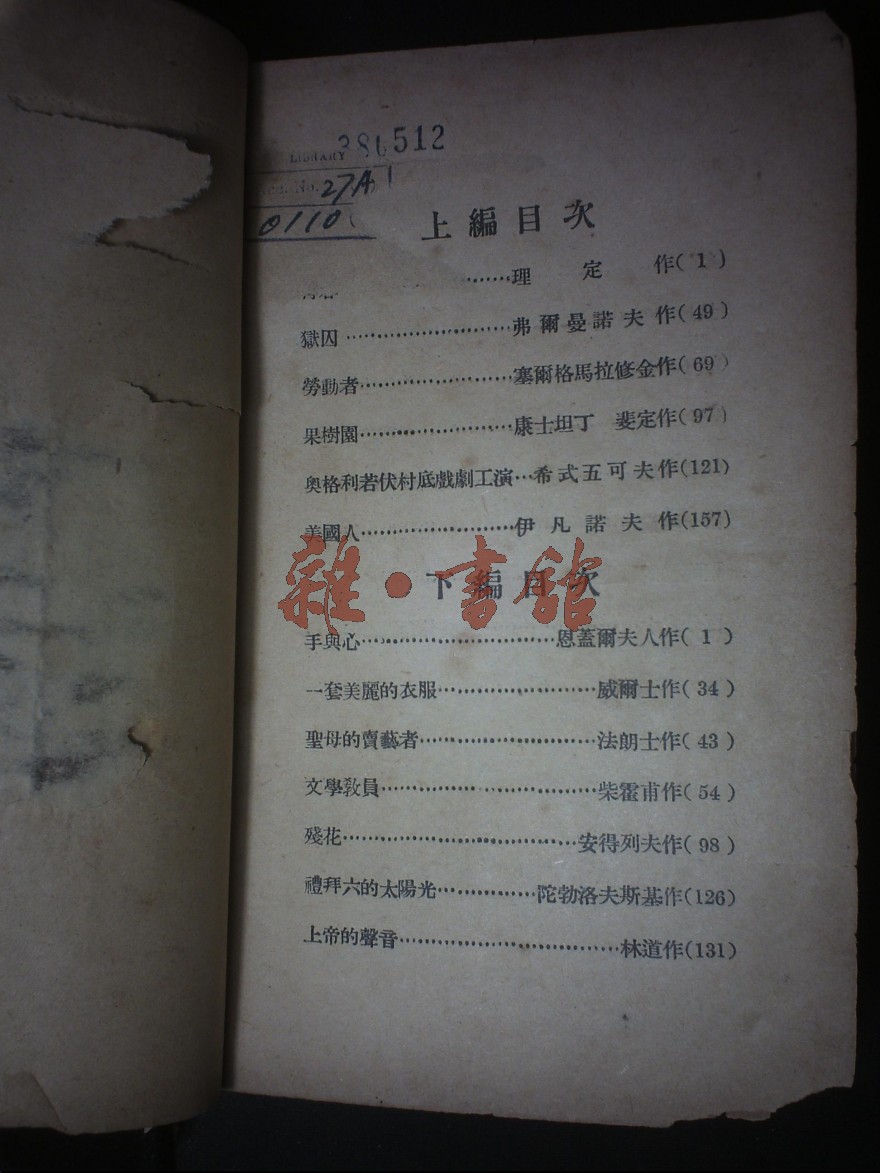 LIBRARY 380512
No. 27A
0110
上編目次
……理定作(1)
獄囚……弗爾曼諾夫作(49)
勞動者……塞爾格馬拉修金作(69)
果樹園……康士坦丁 斐定作(97)
奧格利若伏村底戲劇工演…希式五可夫作(121)
美國人……伊凡諾夫作(157)
雜·書館
下編目次
手與心……恩蓋爾夫人作(1)
一套美麗的衣服……威爾士作(34)
聖母的賣藝者……法朗士作(43)
文學教員……柴霍甫作(54)
殘花……安得列夫作(98)
禮拜六的太陽光……陀勃洛夫斯基作(126)
上帝的聲音……林道作(131)